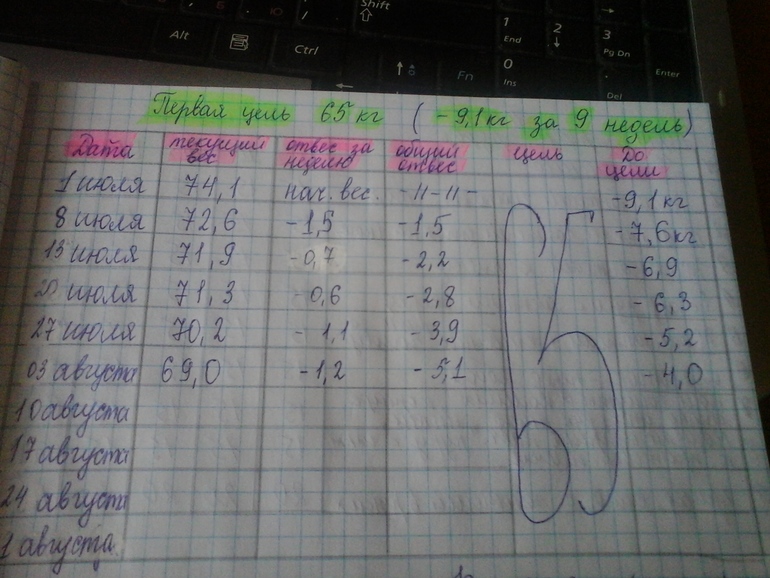 Shift
Alt
Ctrl
Fn
1
End
2
3
Pg Dn
0
Ins
.
Del
Enter
Первая цель 65 кг (-9,1кг за 9 недель)
Дата текущий вес отвес за неделю общий отвес цель До цели
1 июля 74,1 нач. вес. -11-11- -9,1 кг
8 июля 72,6 -1,5 -1,5 -7,6кг
13 июля 71,9 -0,7 -2,2 -6,9
20 июля 71,3 -0,6 -2,8 -6,3
27 июля 70,2 -1,1 -3,9 -5,2
03 августа 69,0 -1,2 -5,1 -4,0
10 августа
17 августа
24 августа
1 августа
65